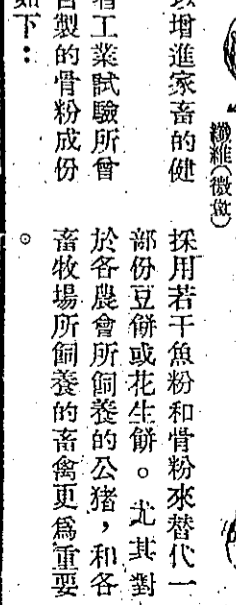 纖維(微
增進家畜的健
工業試驗所曾
製的骨粉成份
如下：
採用若干魚粉和骨粉來替代一
部份豆餅或花生餅。尤其對
於各農會所飼養的公猪，和各
畜牧場所飼養的畜禽更爲重要
。